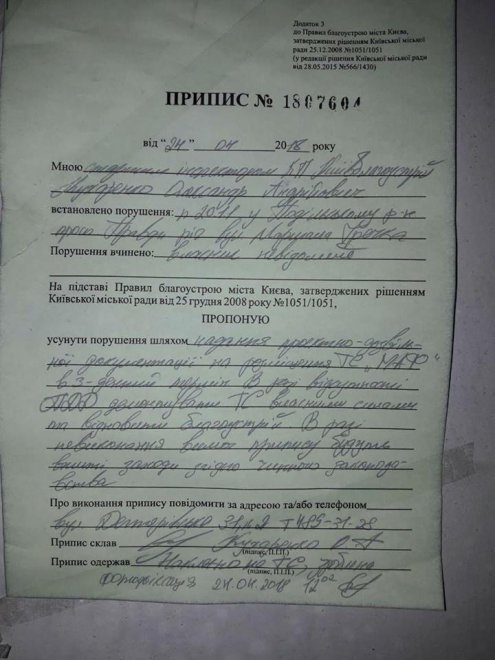 Додаток 3
до Правил благоустрою міста Києва,
затверджених рішенням Київської міської
ради 25.12.2008 №1051/1051
(у редакції рішення Київської міської ради
від 28.05.2015 №566/1430)
ПРИПИС № 1807604
від “24” 04 2018 року
Мною старшим інспектором КП Київблагоустрій
Олександр Андрійович
встановлено порушення: п 20.1.1. у Подільському р-н
просп Правди ріг вул Маршала Гречка
Порушення вчинено: власник невідомий
На підставі Правил благоустрою міста Києва, затверджених рішенням
Київської міської ради від 25 грудня 2008 року №1051/1051,
ПРОПОНУЮ
усунути порушення шляхом надання проектно-дозвіль-
ної документації на розміщення ТС „МАФ“
в 3-денний термін В разі відсутності
ПДД демонтувати ТС власними силами
та відновити благоустрій В разі
невиконання вимог припису будуть
вжиті заходи згідно чинного законода-
вства
Про виконання припису повідомити за адресою та/або телефоном
вул Дегтярівська 31 к 2 т 489-31-28
Припис склав
(підпис, П.І.П.)
Припис одержав Наклеєно на ТС, зроблена
(підпис, П.І.П.)
фотофіксація 24.04.2018 12 02